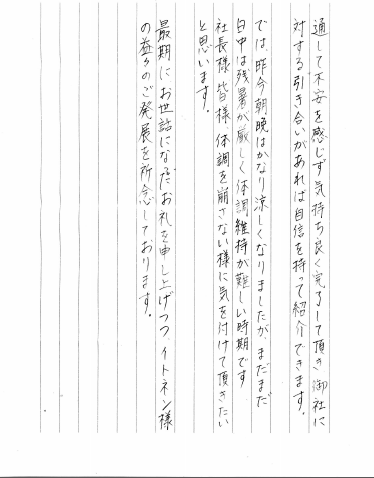 通して不安を感じず気持ち良く完了して頂き御社に
対する引き合いがあれば自信を持って紹介できます。
では、昨今朝晩はかなり涼しくなりましたが、まだまだ
日中は残暑が厳しく体調維持が難しい時期です
社長様 皆様 体調を崩さない様に気を付けて頂きたい
と思います。
最期にお世話になったお礼を申し上げつつ、イトネン様
の益々のご発展を祈念しております。